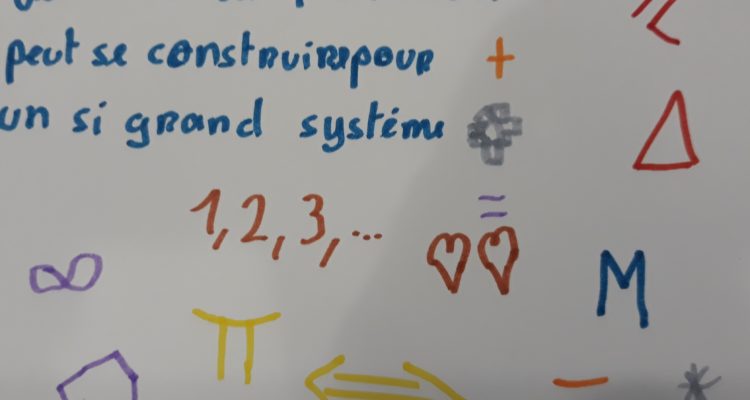 peut se construire pour +
un si grand système
Δ
1, 2, 3, ...
=
∞
M
π
⇔
−
*